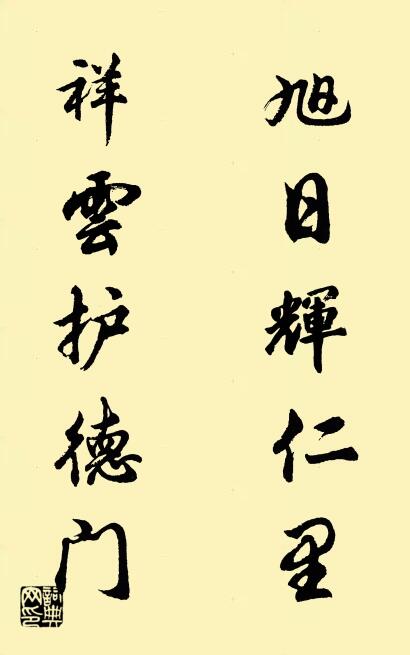 旭日輝仁里
祥雲护德门